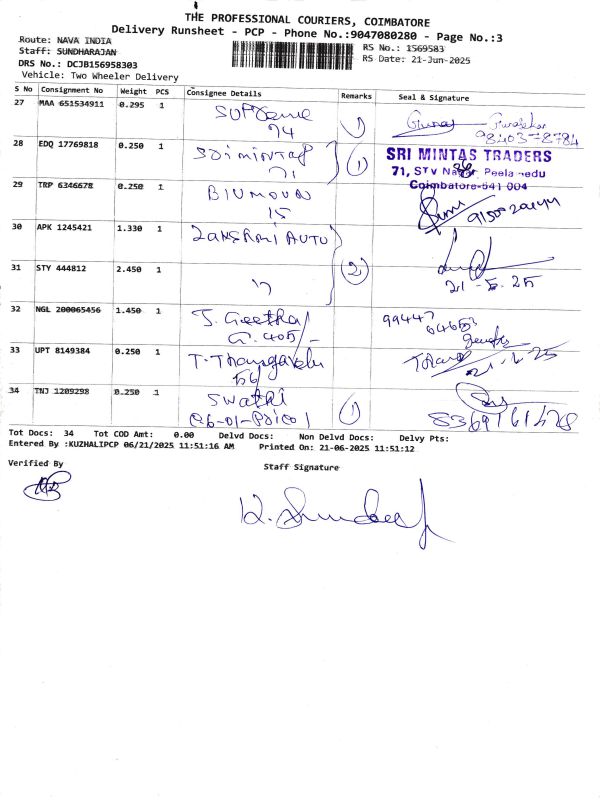 THE PROFESSIONAL COURIERS, COIMBATORE
Delivery Runsheet - PCP - Phone No.:9047080280 - Page No.:3
Route: NAVA INDIA
RS No.: 1569583
Staff: SUNDHARAJAN
RS Date: 21-Jun-2025
DRS No.: DCJB156958303
Vehicle: Two Wheeler Delivery
S No Consignment No Weight PCS Consignee Details Remarks Seal & Signature
27 MAA 651534911 0.295 1 Supreme 74 1
98403-78784
28 EDQ 17769818 0.250 1 71 1
SRI MINTAS TRADERS
71, STV Nagar, Peelamedu
Coimbatore-641 004
29 TRP 6346678 0.250 1 15
30 APK 1245421 1.330 1 LAKSHMI AUTO 2
31 STY 444812 2.450 1 "
32 NGL 200065456 1.450 1 S. Geetha G. 405
99447 64653
33 UPT 8149384 0.250 1 T. Thangavelu 56
21-6-25
34 TNJ 1209298 0.250 1 Swathi 1
8369161478
Tot Docs: 34 Tot COD Amt: 0.00 Delvd Docs: Non Delvd Docs: Delvy Pts:
Entered By :KUZHALIPCP 06/21/2025 11:51:16 AM Printed On: 21-06-2025 11:51:12
Verified By
Staff Signature